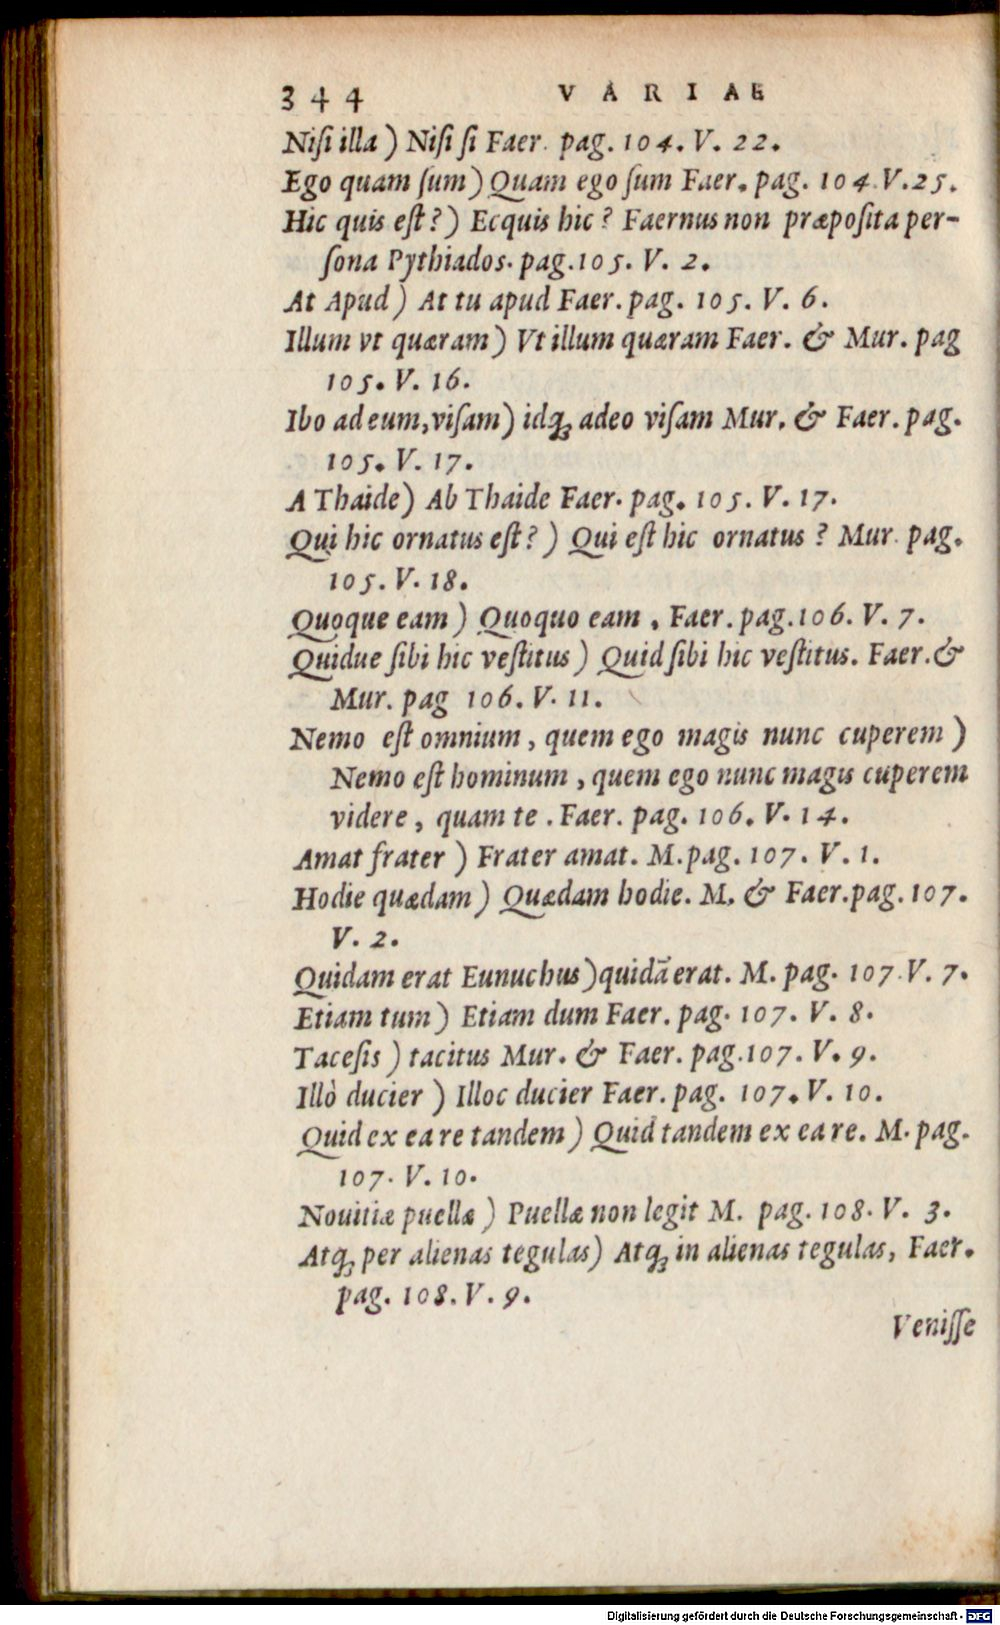 344 VARIAE
Niſi illa ) Niſi ſi Faer. pag. 104. V. 22.
Ego quam ſum) Quam ego ſum Faer. pag. 104. V. 25.
Hic quis eſt?) Ecquis hic? Faernus non præpoſita per-
ſona Pythiados. pag. 105. V. 2.
At Apud ) At tu apud Faer. pag. 105. V. 6.
Illum vt quæram ) Vt illum quæram Faer. & Mur. pag
105. V. 16.
Ibo ad eum, viſam) idq; adeo viſam Mur. & Faer. pag.
105. V. 17.
A Thaide) Ab Thaide Faer. pag. 105. V. 17.
Qui hic ornatus eſt?) Qui eſt hic ornatus? Mur. pag.
105. V. 18.
Quoque eam ) Quoquo eam, Faer. pag. 106. V. 7.
Quidue ſibi hic veſtitus ) Quid ſibi hic veſtitus. Faer. &
Mur. pag 106. V. 11.
Nemo eſt omnium, quem ego magis nunc cuperem )
Nemo eſt hominum, quem ego nunc magis cuperem
videre, quam te. Faer. pag. 106. V. 14.
Amat frater ) Frater amat. M. pag. 107. V. 1.
Hodie quædam ) Quædam hodie. M. & Faer. pag. 107.
V. 2.
Quidam erat Eunuchus) quidā erat. M. pag. 107. V. 7.
Etiam tum ) Etiam dum Faer. pag. 107. V. 8.
Taceſis ) tacitus Mur. & Faer. pag. 107. V. 9.
Illò ducier ) Illoc ducier Faer. pag. 107. V. 10.
Quid ex ea re tandem ) Quid tandem ex ea re. M. pag.
107. V. 10.
Nouitiæ puellæ ) Puellæ non legit M. pag. 108. V. 3.
Atq; per alienas tegulas) Atq; in alienas tegulas, Faer.
pag. 108. V. 9.
Veniſſe
Digitalisierung gefördert durch die Deutsche Forschungsgemeinschaft - DFG